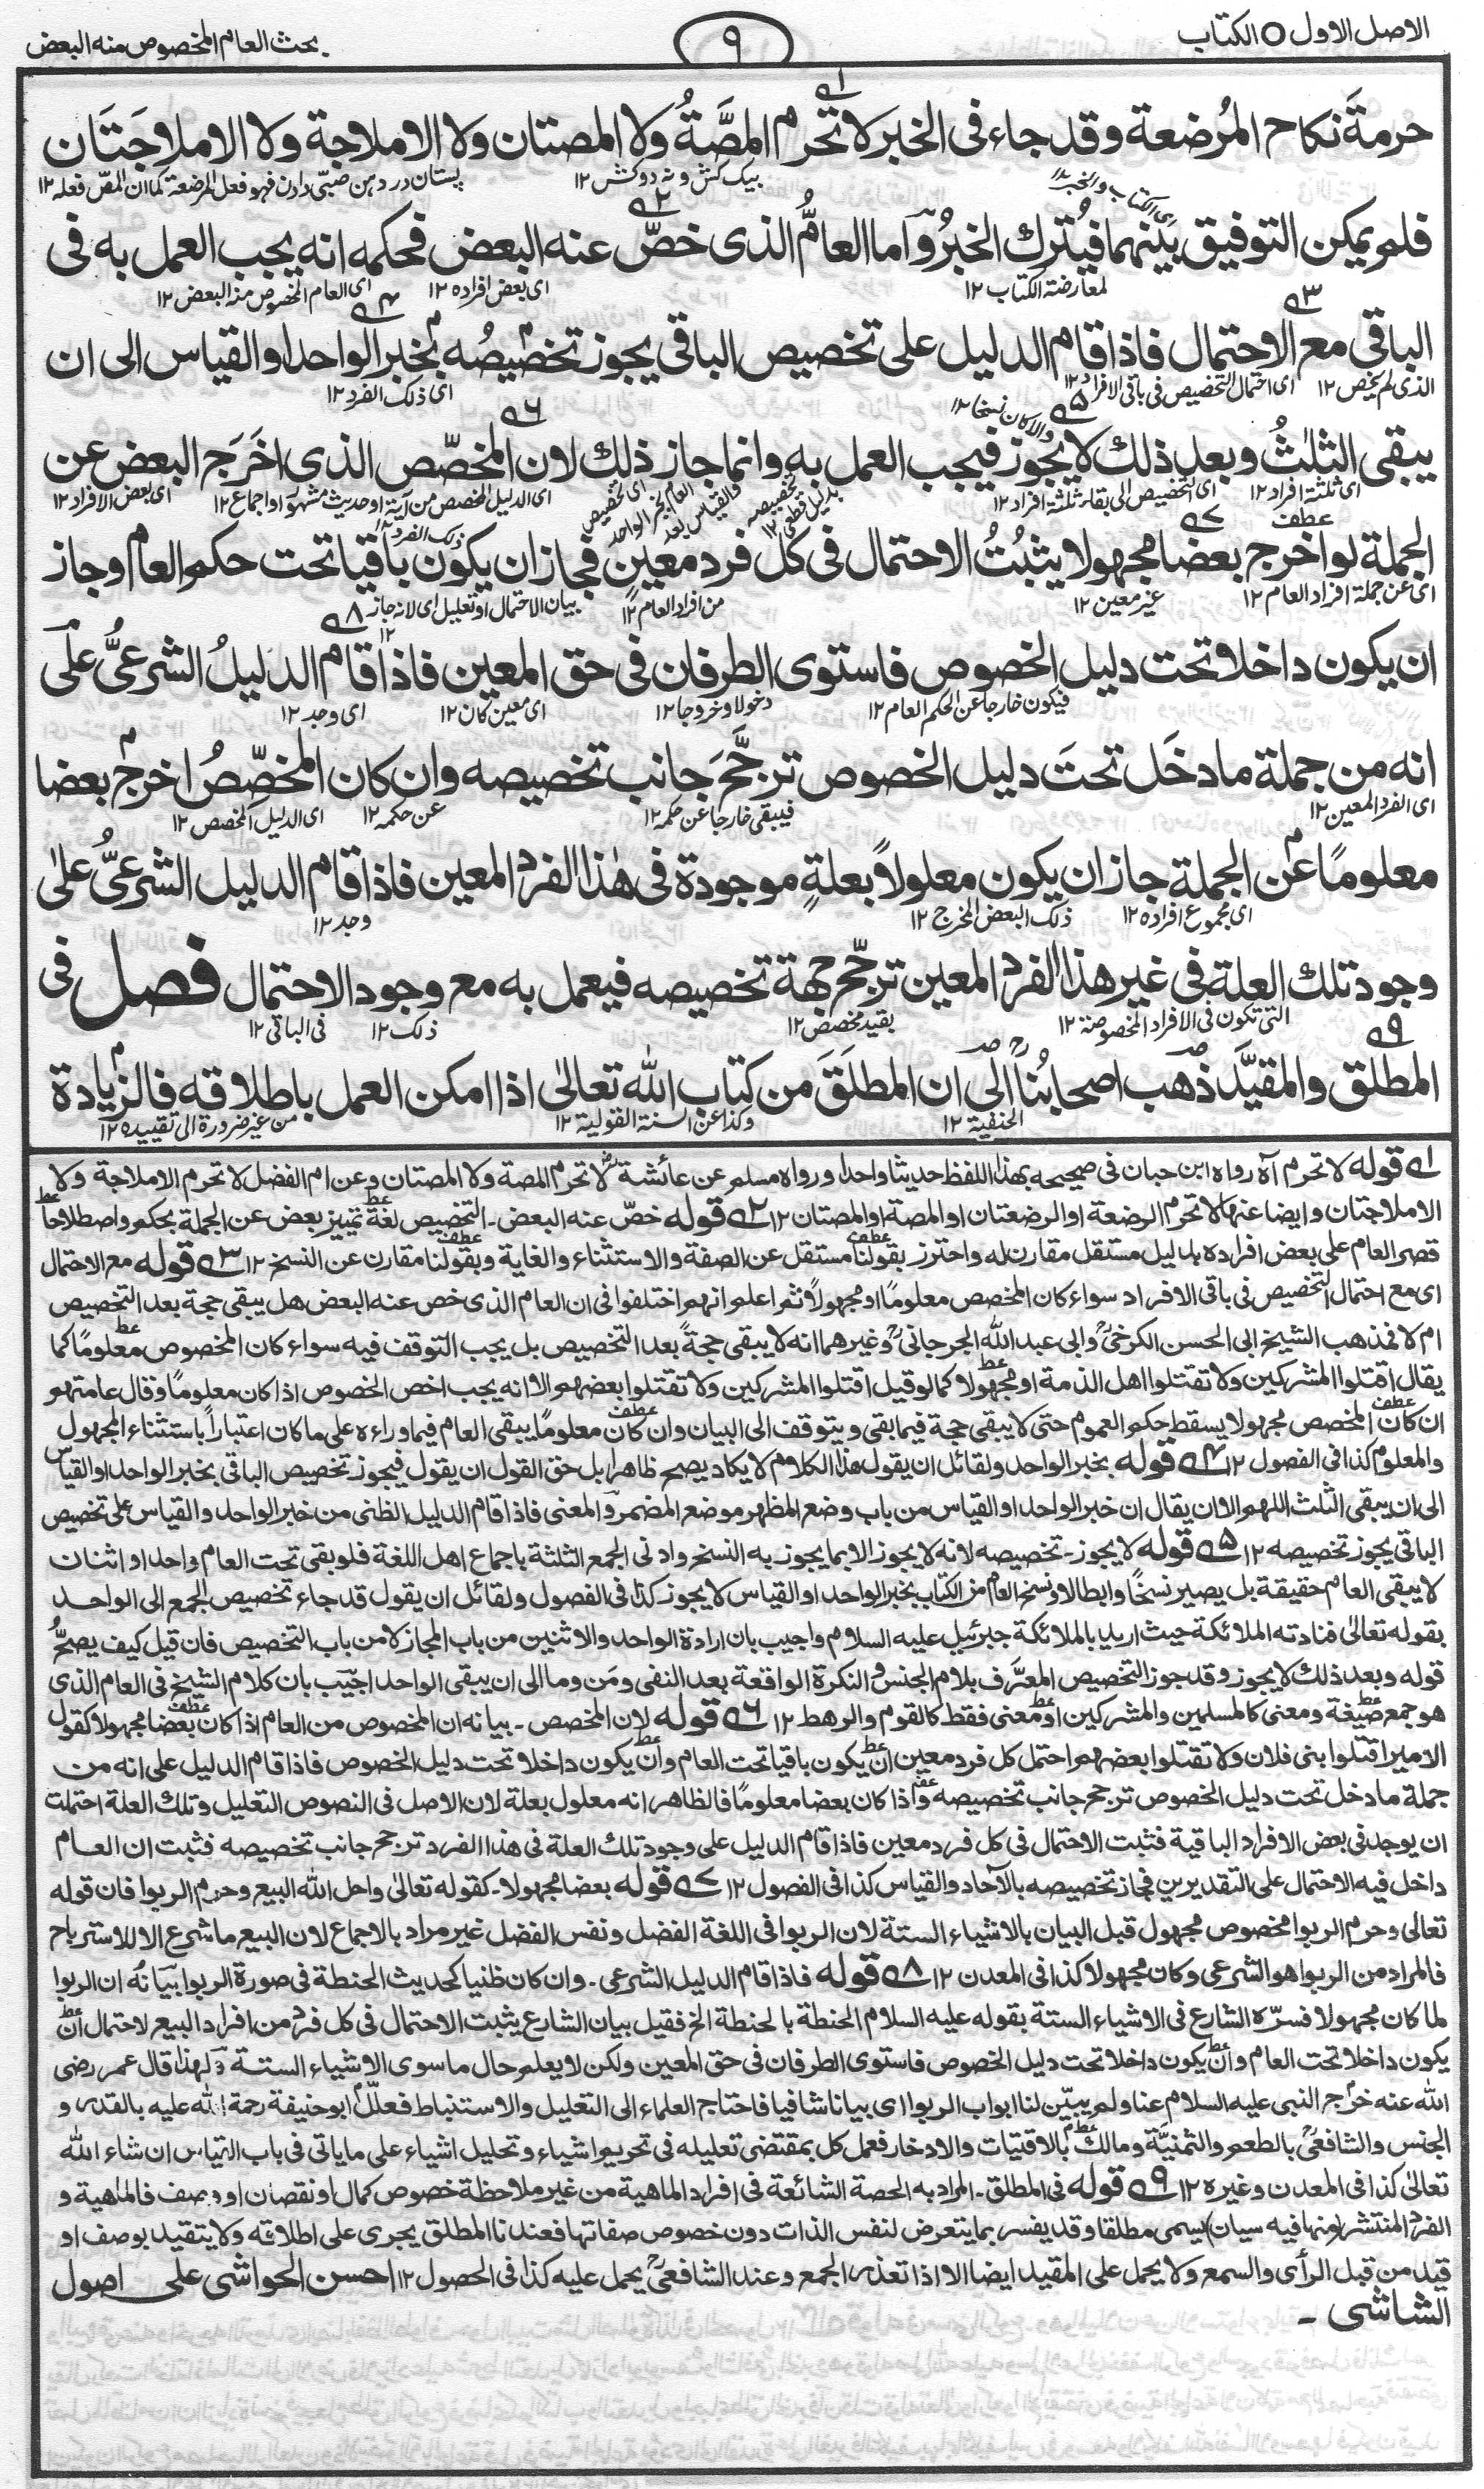 الاصل الاول O الكتاب
٩
بحث العام المخصوص منه البعض
حرمةَ نكاح المُرضعة وقد جاء فى الخبر لا تحرم المصَّةُ ولا المصتان ولا الاملاجة ولا الاملاجَتَان
بیک کش ونہ دو کش ١٢ پستان در دہن صبیّ دادن فهو فعل المرضعة كما ان المصّ فعله ١٢
اى الكتاب والخبر ١٢
فلم يمكن التوفيق بَينهما فيُترك الخبرُ واَما العامُّ الذى خصّ عنه البعض فحكمه انه يجب العمل به فى
لمعارضته الكتاب ١٢ اى بعض افراده ١٢ اى العام المخصوص منه البعض ١٢
الباقى مع الاحتمال فاذا قام الدليل على تخصيص الباقى يجوز تخصيصُه بخبر الواحد او القياس الى ان
الذى لم يخص ١٢ اى احتمال التخصيص فى باقى الافراد ١٢ اى ذلك الفرد ١٢
والا كان نسخا ١٢
يبقى الثلٰثُ وبعد ذلك لا يجوز فيجب العمل به وانما جاز ذلك لان المخصّص الذى اخرَجَ البعض عن
اى ثلثة افراد ١٢ اى التخصيص الى بقاء ثلثة افراد ١٢ اى الدليل المخصص من آية او حديث مشهور او اجماع ١٢ اى بعض الافراد ١٢
الجملة لو اخرج بعضا مجهولا يثبُتُ الاحتمال فى كل فرد معينٍ فجاز ان يكون باقيا تحت حكم العام وجاز
اى عن جملة افراد العام ١٢ غير معين ١٢ من افراد العام ١٢ بيان الاحتمال او تعليل اى لانه جاز ١٢
ان يكون داخلا تحت دليل الخصوص فاستوى الطرفان فى حق المعين فاذا قام الدليلُ الشرعىُّ على
فيكون خارجا عن الحكم العام ١٢ دخولا وخروجا ١٢ اى معين كان ١٢ اى وجد ١٢
انه من جملة ما دخَل تحتَ دليل الخصوص ترجَّحَ جانب تخصيصه وان كان المخصِّصُ اخرج بعضا
اى الفرد المعين ١٢ فيبقى خارجا عن حكمه ١٢ عن حكمه ١٢ اى الدليل المخصص ١٢
معلومًا عن الجملة جاز ان يكون معلولاً بعلةٍ موجودة فى هٰذا الفرد المعين فاذا قام الدليل الشرعىُّ علىٰ
اى مجموع افراده ١٢ ذلك البعض المخرج ١٢ وجد ١٢
وجود تلك العلة فى غير هذا الفرد المعين ترجّح جهة تخصيصه فيعمل به مع وجود الاحتمال فصل فى
التى تكون فى الافراد المخصوصة ١٢ بقيد مخصص ١٢ ذلك ١٢ فى الباقى ١٢
المطلق والمقيَّد ذهب اصحابُنا الى ان المطلَقَ من كتاب الله تعالىٰ اذا امكن العمل باطلاقه فالزيادة
الحنفية ١٢ وكذا عن السنة القولية ١٢ من غير ضرورة الى تقييده ١٢
١ قوله لا تحرم اٰه رواه ابن حبان فى صحيحه بهذا اللفظ حديثا واحدا ورواه مسلم عن عائشة لا تحرم المصة ولا المصتان وعن ام الفضل لا تحرم الاملاجة ولا
الاملاجتان وايضا عنها لا تحرم الرضعة او الرضعتان او المصة او المصتان ١٢ ٢ قوله خصّ عنه البعض ـ التخصيص لغة تمييز بعض عن الجملة بحكم واصطلاحا
قصر العام على بعض افراده بدليل مستقل مقارن له واحترز بقولنا مستقل عن الصفة والاستثناء والغاية وبقولنا مقارن عن النسخ ١٢ ٣ قوله مع الاحتمال
اى مع احتمال التخصيص فى باقى الافراد سواء كان المخصص معلومًا او مجهولاً ثم اعلم انهم اختلفوا فى ان العام الذى خص عنه البعض هل يبقى حجة بعد التخصيص
ام لا فمذهب الشيخ ابى الحسن الكرخى وابى عبد الله الجرجانى وغيرهما انه لا يبقى حجةً بعد التخصيص بل يجب التوقف فيه سواء كان المخصوص معلومًا كما
يقال اقتلوا المشركين ولا تقتلوا اهل الذمة او مجهولا كما لو قيل اقتلوا المشركين ولا تقتلوا بعضهم الا انه يجب اخص الخصوص اذا كان معلومًا وقال عامتهم
ان كان المخصص مجهولا يسقط حكم العموم حتى لا يبقى حجة فيما بقى ويتوقف الى البيان وان كان معلومًا يبقى العام فيما وراءه على ما كان اعتباراً باستثناء المجهول
والمعلوم كذا فى الفصول ١٢ ٤ قوله بخبر الواحد ولقائل ان يقول هذا الكلام لا يكاد يصح ظاهرا بل حق القول ان يقول فيجوز تخصيص الباقى بخبر الواحد او القياس
الى ان يبقى الثلث اللهم الا ان يقال ان خبر الواحد او القياس من باب وضع المظهر موضع المضمر والمعنى فاذا قام الدليل الظنى من خبر الواحد والقياس على تخصيص
الباقى يجوز تخصيصه ١٢ ٥ قوله لا يجوز ـ تخصيصه لانه لا يجوز الا بما يجوز به النسخ وادنى الجمع الثلثة باجماع اهل اللغة فلو بقى تحت العام واحد او اثنان
لا يبقى العام حقيقة بل يصير نسخًا وابطالا ونسخ العام من الكتاب بخبر الواحد او القياس لا يجوز كذا فى الفصول ولقائل ان يقول قد جاء تخصيص الجمع الى الواحد
بقوله تعالىٰ فنادته الملائكة حيث اريد بالملائكة جبرئيل عليه السلام واجيب بان ارادة الواحد والاثنين من باب المجاز لا من باب التخصيص فان قيل كيف يصحُّ
قوله وبعد ذلك لا يجوز وقد جوز التخصيص المعرَّف بلام الجنس والنكرة الواقعة بعد النفى ومَن وما الى ان يبقى الواحد اجيب بان كلام الشيخ فى العام الذى
هو جمع صيغة ومعنى كالمسلمين والمشركين او معنى فقط كالقوم والرهط ١٢ ٦ قوله لان المخصص ـ بيانه ان المخصوص من العام اذا كان بعضا مجهولا كقول
الامير اقتلوا بنى فلان ولا تقتلوا بعضهم احتمل كل فرد معين ان يكون باقيا تحت العام وان يكون داخلا تحت دليل الخصوص فاذا قام الدليل على انه من
جملة ما دخل تحت دليل الخصوص ترجح جانب تخصيصه واذا كان بعضا معلومًا فالظاهر انه معلول بعلة لان الاصل فى النصوص التعليل وتلك العلة احتملت
ان يوجد فى بعض الافراد الباقية فتثبت الاحتمال فى كل فرد معين فاذا قام الدليل على وجود تلك العلة فى هذا الفرد ترجح جانب تخصيصه فثبت ان العام
داخل فيه الاحتمال على التقديرين فجاز تخصيصه بالآحاد والقياس كذا فى الفصول ١٢ ٧ قوله بعضا مجهولا ـ كقوله تعالىٰ واحل الله البيع وحرم الربوا فان قوله
تعالى وحرم الربوا مخصوص مجهول قبل البيان بالاشياء الستة لان الربوا فى اللغة الفضل ونفس الفضل غير مراد بالاجماع لان البيع ما شرع الا للاسترباح
فالمراد من الربوا هو الشرعى وكان مجهولا كذا فى المعدن ١٢ ٨ قوله فاذا قام الدليل الشرعى ـ وان كان ظنيا كحديث الحنطة فى صورة الربوا بيانه ان الربوا
لما كان مجهولا فسرّه الشارع فى الاشياء الستة بقوله عليه السلام الحنطة بالحنطة الخ فقبل بيان الشارع يثبت الاحتمال فى كل فرد من افراد البيع لاحتمال ان
يكون داخلا تحت العام وان يكون داخلا تحت دليل الخصوص فاستوى الطرفان فى حق المعين ولكن لا يعلم حال ما سوى الاشياء الستة ولهذا قال عمر رضى
الله عنه خرج النبى عليه السلام عنا ولم يبيّن لنا ابواب الربوا اى بيانا شافيا فاحتاج العلماء الى التعليل والاستنباط فعلّل ابو حنيفة رحمة الله عليه بالقدر و
الجنس والشافعى بالطعم والثمنيّة ومالك بالاقتيات والادخار فعمل كل بمقتضى تعليله فى تحريم اشياء وتحليل اشياء على ما ياتى فى باب القياس ان شاء الله
تعالىٰ كذا فى المعدن وغيره ١٢ ٩ قوله فى المطلق ـ المراد به الحصة الشائعة فى افراد الماهية من غير ملاحظة خصوص كمال او نقصان او وصف فالماهية و
الفرد المنتشر (منها فيه سيان) يسمى مطلقا وقد يفسر بما يتعرض لنفس الذات دون خصوص صفاتها فعندنا المطلق يجرى على اطلاقه ولا يتقيد بوصف او
قيد من قبل الرأى والسمع ولا يحمل على المقيد ايضا الا اذا تعذر الجمع وعند الشافعى يحمل عليه كذا فى الحصول ١٢ احسن الحواشى على اصول
الشاشى ـ